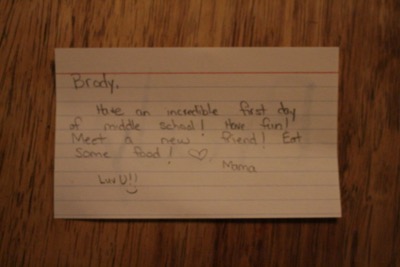 Brody,
Have an incredible first day
of middle school! Have fun!
Meet a new friend! Eat
some food! ♡, 
Mama
Luv U!!